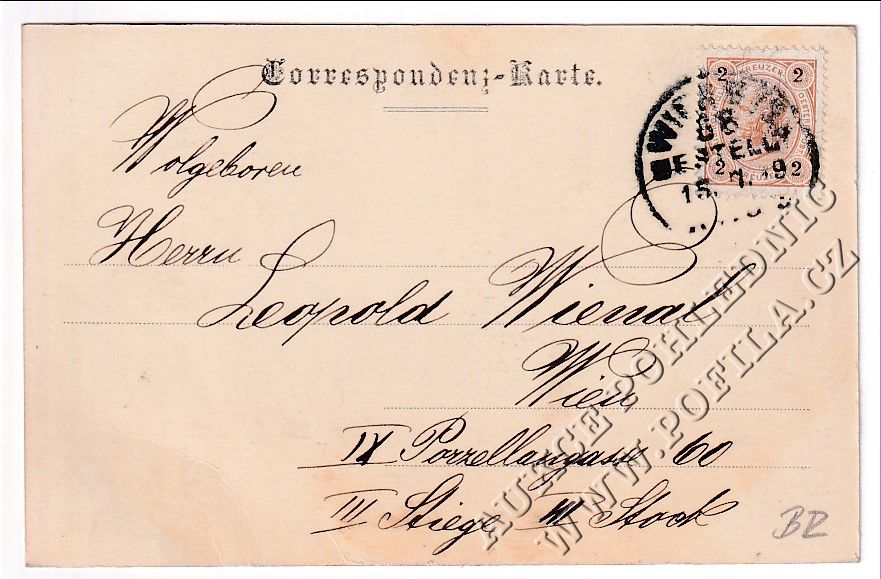 Correspondenz-Karte.
2 2
2 2
BESTELLT
Wolgeboren
Herrn
Leopold Wienal
Wien
IX Porzellangasse 60
III Stiege III Stock
BR
AUKCE POHLEDNIC
WWW.POFILA.CZ